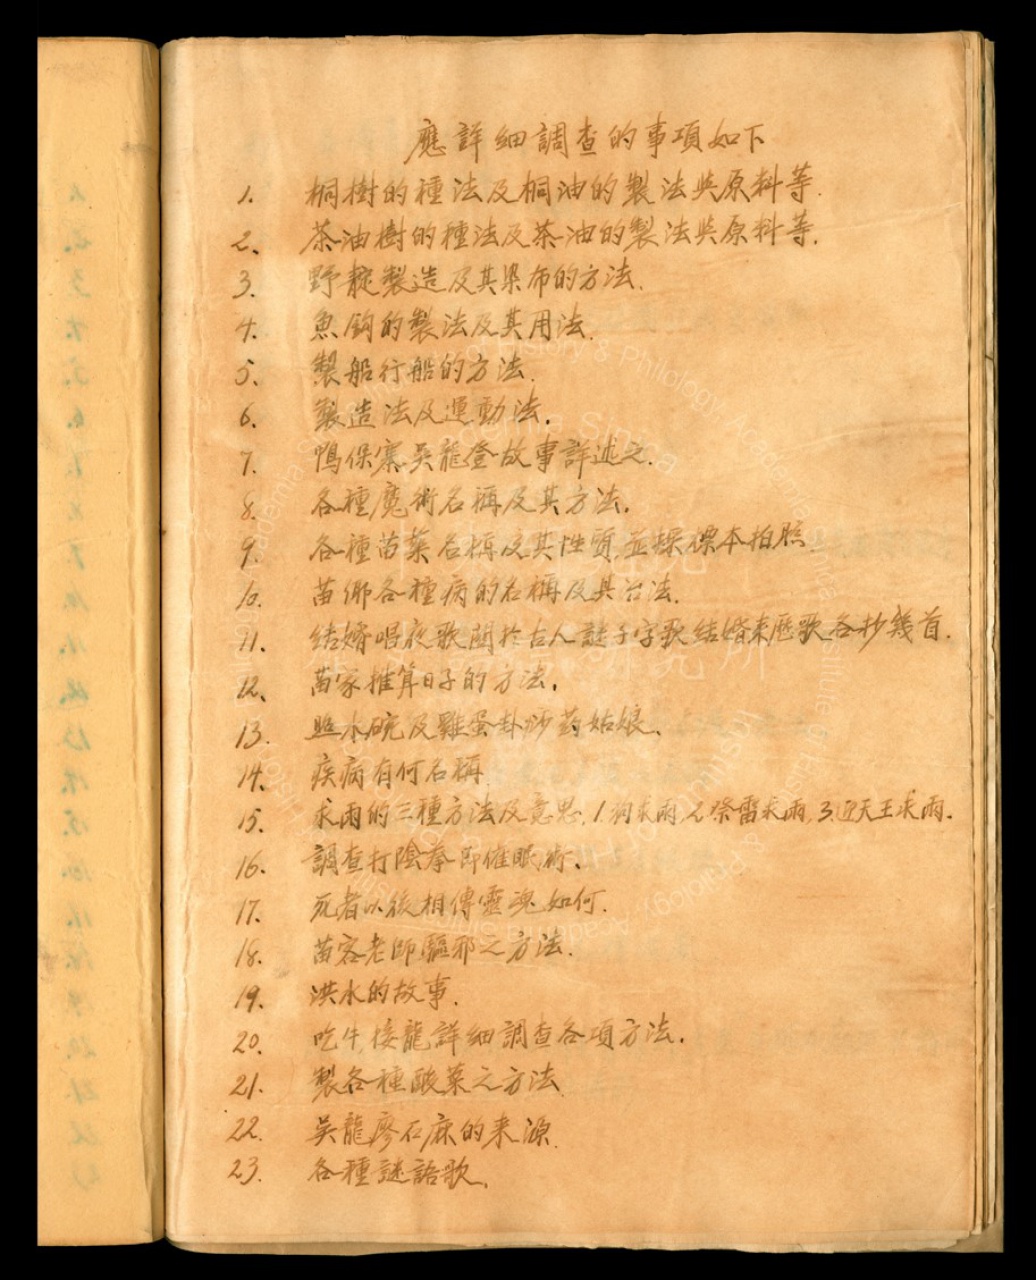 應詳細調查的事項如下
1. 桐樹的種法及桐油的製法與原料等.
2、 茶油樹的種法及茶油的製法與原料等.
3. 野靛製造及其染布的方法.
4. 魚鈎的製法及其用法.
5、 製船行船的方法.
6、 製造法及運動法.
7、 鴨保寨吳龍登故事詳述之.
8. 各種魔術名稱及其方法.
9、 各種苗藥名稱及其性質,並採標本拍照.
10. 苗鄉各種病的名稱及其治法.
11. 結婚唱夜歌關於古人謎子字歌結婚來歷歌各抄幾首.
12、 苗家推算日子的方法.
13. 照水碗及雞蛋卦 药姑娘、
14. 疾病有何名稱
15. 求雨的三種方法及意思,1.狗求雨,2.祭雷求雨,3.迎天王求雨.
16. 調查打陰拳即催眠術、
17. 死者以後相傳靈魂如何.
18. 苗客老師驅邪之方法.
19. 洪水的故事.
20. 吃牛,接龍詳細調查各項方法.
21. 製各種酸菜之方法
22. 吳龍廖石麻的來源.
23. 各種謎語歌.